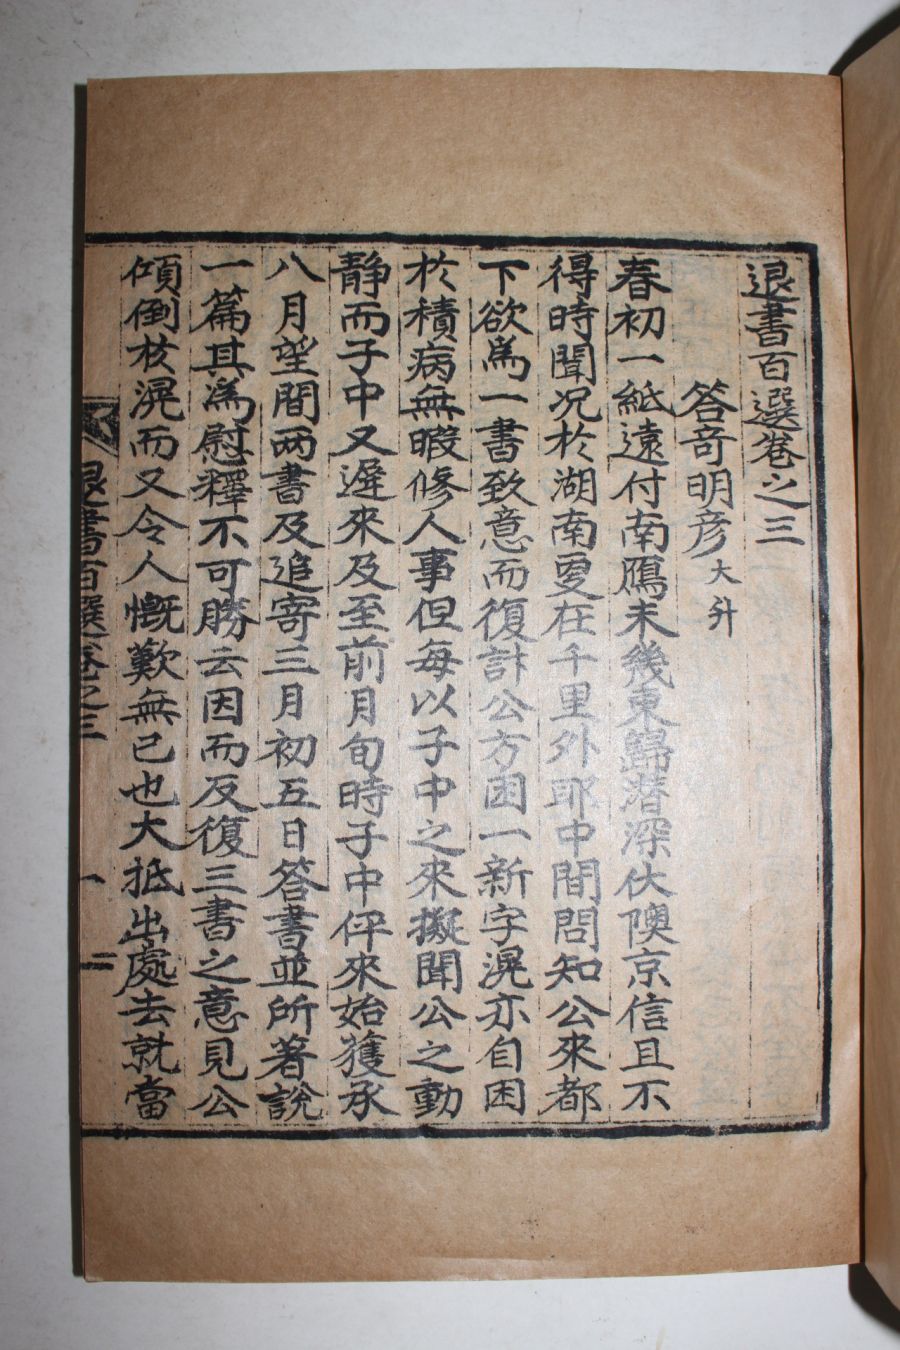 退書百選卷之三
答奇明彦大升
春初一紙遠付南鴈末幾東歸潜深伏隩京信且不
得時聞况於湖南敻在千里外耶中間問知公來都
下欲爲一書致意而復計公方困一新字滉亦自困
於積病無暇修人事但每以子中之來擬聞公之動
静而子中又遲來及至前月旬時子中伻來始獲承
八月望間两書及追寄三月初五日答書並所著說
一篇其爲慰釋不可勝云因而反復三書之意見公
傾倒於滉而又令人慨歎無已也大抵出處去就當
退書百選卷之三 一